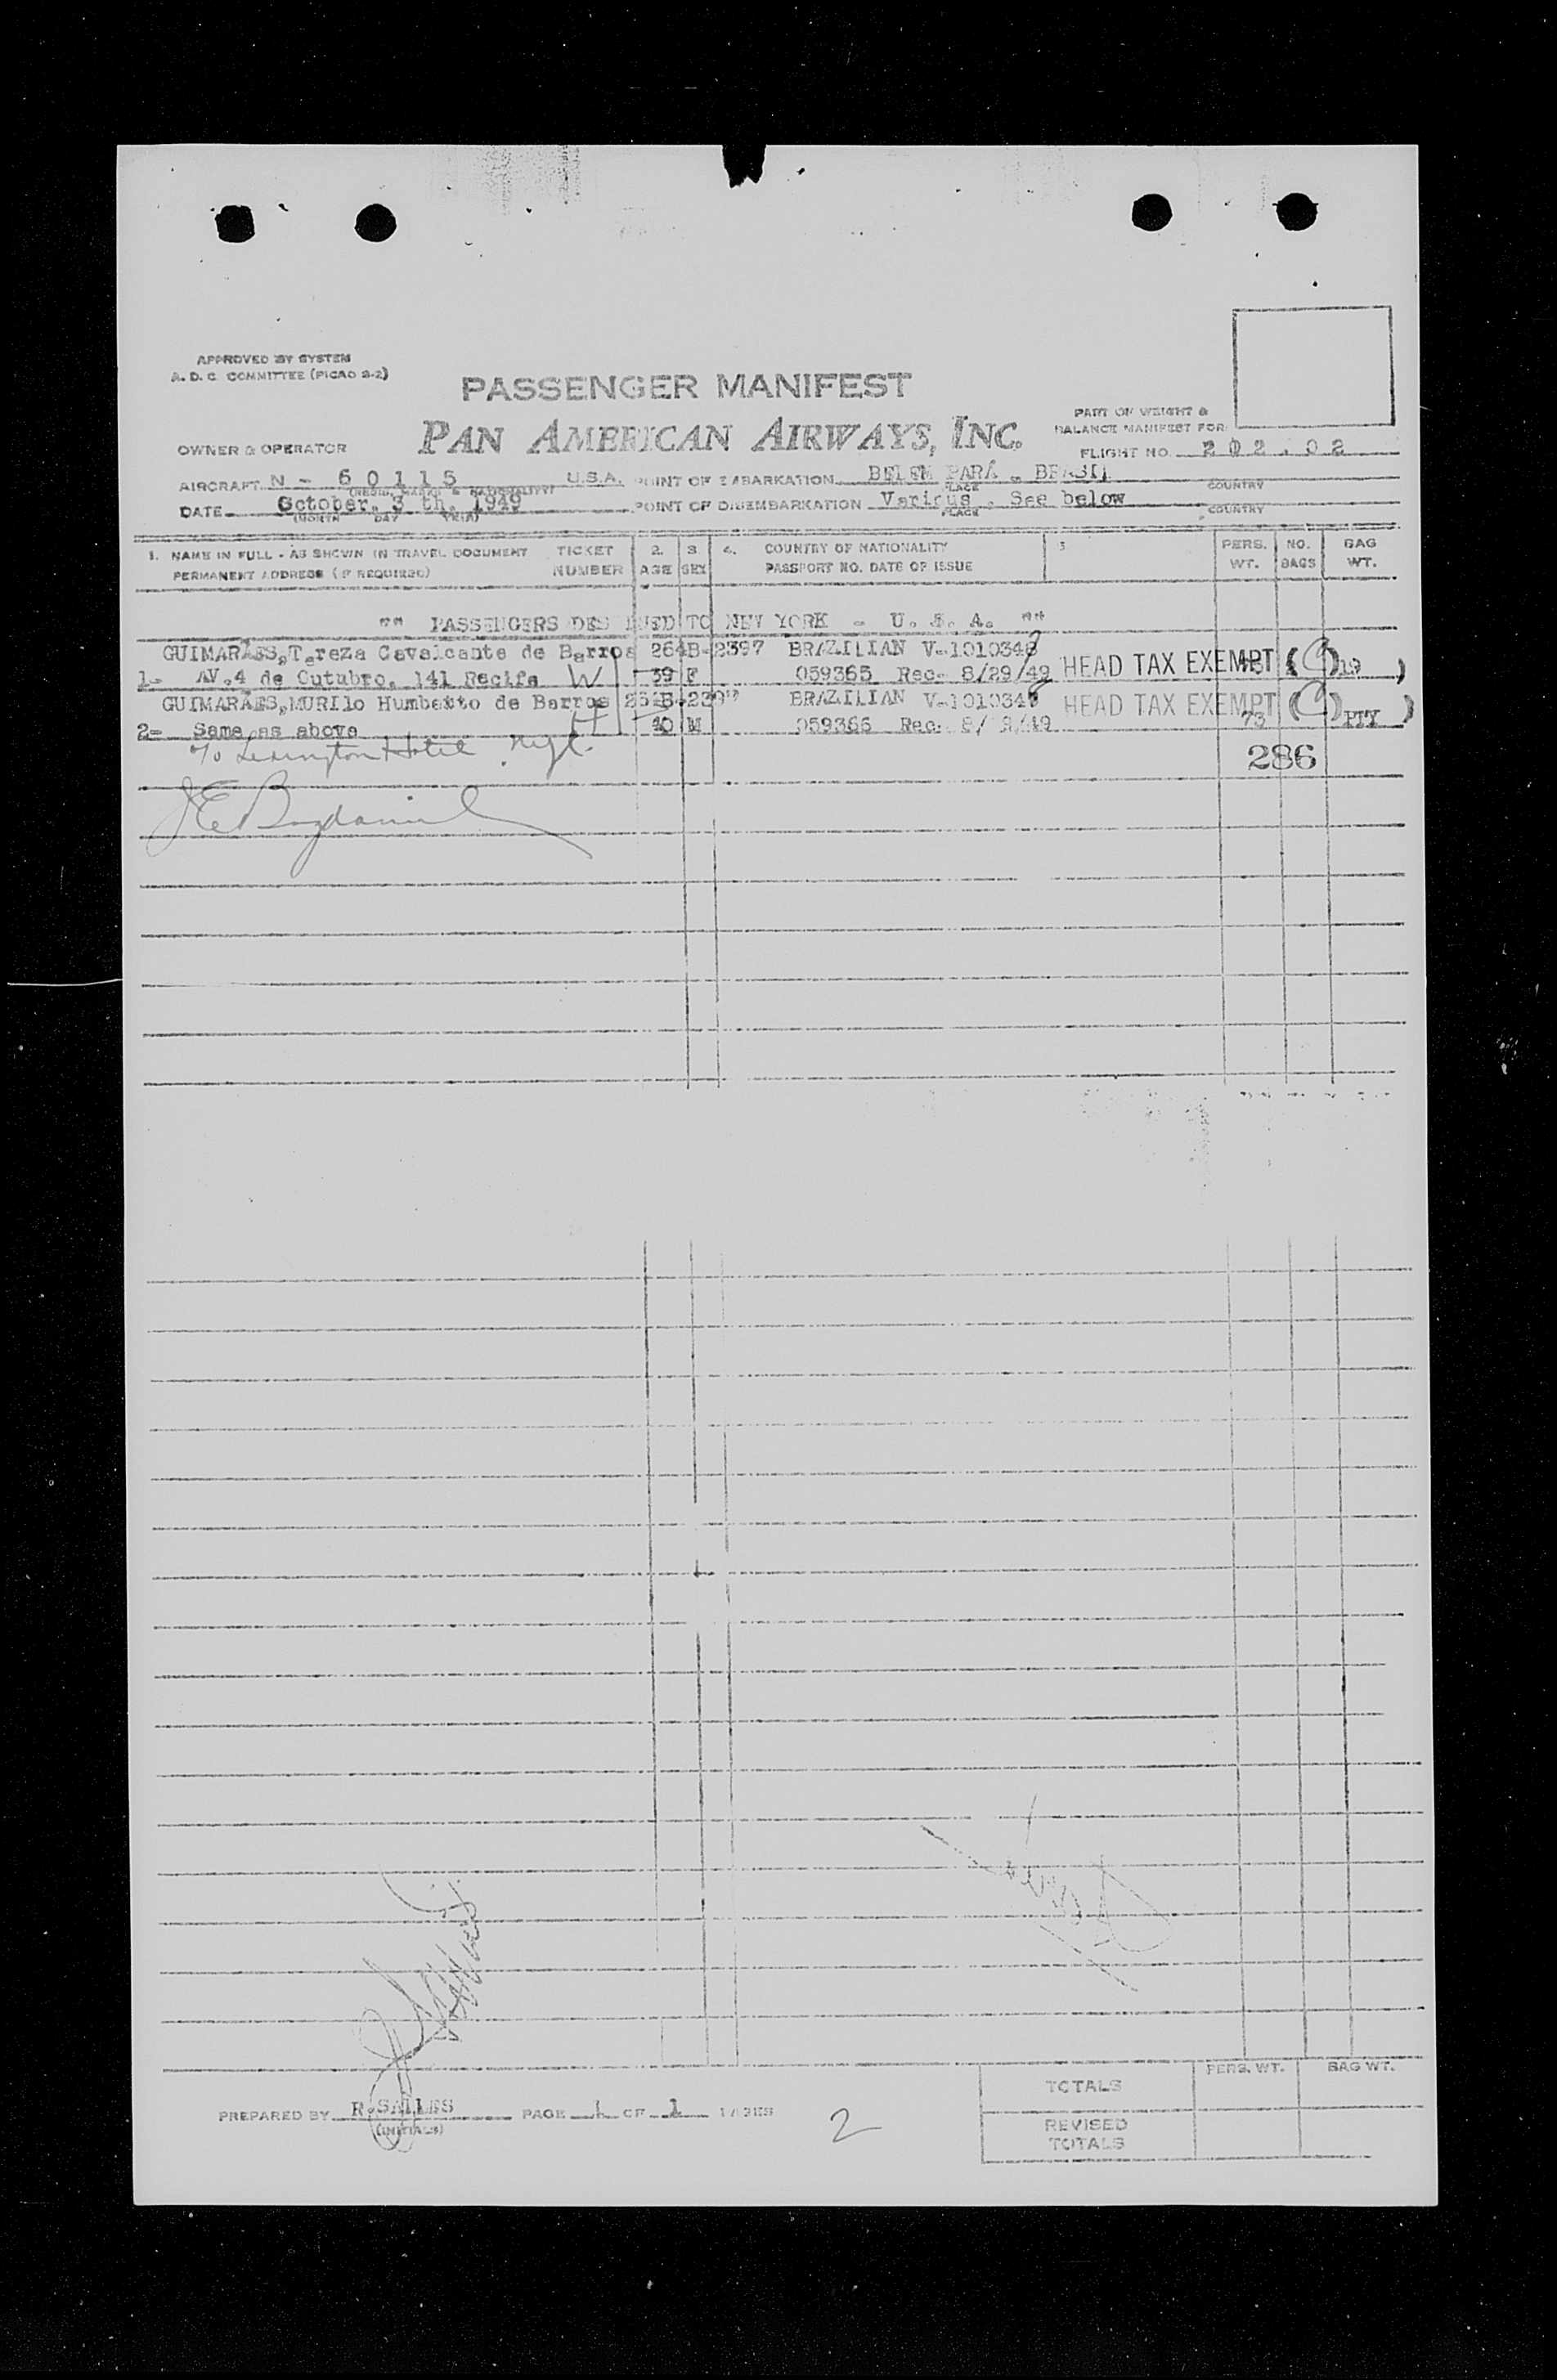 APPROVED BY SYSTEM
A. D. C. COMMITTEE (PICAO 2-2)
PASSENGER MANIFEST
PAN AMERICAN AIRWAYS, INC.
PART OF WEIGHT &
BALANCE MANIFEST FOR
OWNER & OPERATOR
FLIGHT NO. 202.02
AIRCRAFT N - 60115 U.S.A. POINT OF EMBARKATION BELEM PARÁ - BRASIL
PLACE COUNTRY
DATE October, 3 th, 1949 POINT OF DISEMBARKATION Various. See below
(MONTH DAY YEAR) PLACE COUNTRY
1. NAME IN FULL - AS SHOWN IN TRAVEL DOCUMENT TICKET 2. 3. 4. COUNTRY OF NATIONALITY 5 PERS. NO. BAG
PERMANENT ADDRESS (IF REQUIRED) NUMBER AGE SEX PASSPORT NO. DATE OF ISSUE WT. BAGS WT.
"" PASSENGERS DES INED TO NEW YORK - U. S. A. ""
GUIMARÃES,Tereza Cavalcante de Barros 264B-2397 BRAZILIAN
1- AV.4 de Outubro, 141 Recife W 39 F 059365 Rec- 8/29/49 HEAD TAX EXEMPT
GUIMARÃES,MURIlo Humberto de Barros BRAZILIAN HEAD TAX EXEMPT
2- Same as above 40 M 059366 Rec- 73 PTY
% Lexington Hotel, NYC.
286
PERS. WT. BAG WT.
TOTALS
PREPARED BY R.SALLES PAGE 1 OF 1 PAGES
(INITIALS)
2
REVISED
TOTALS